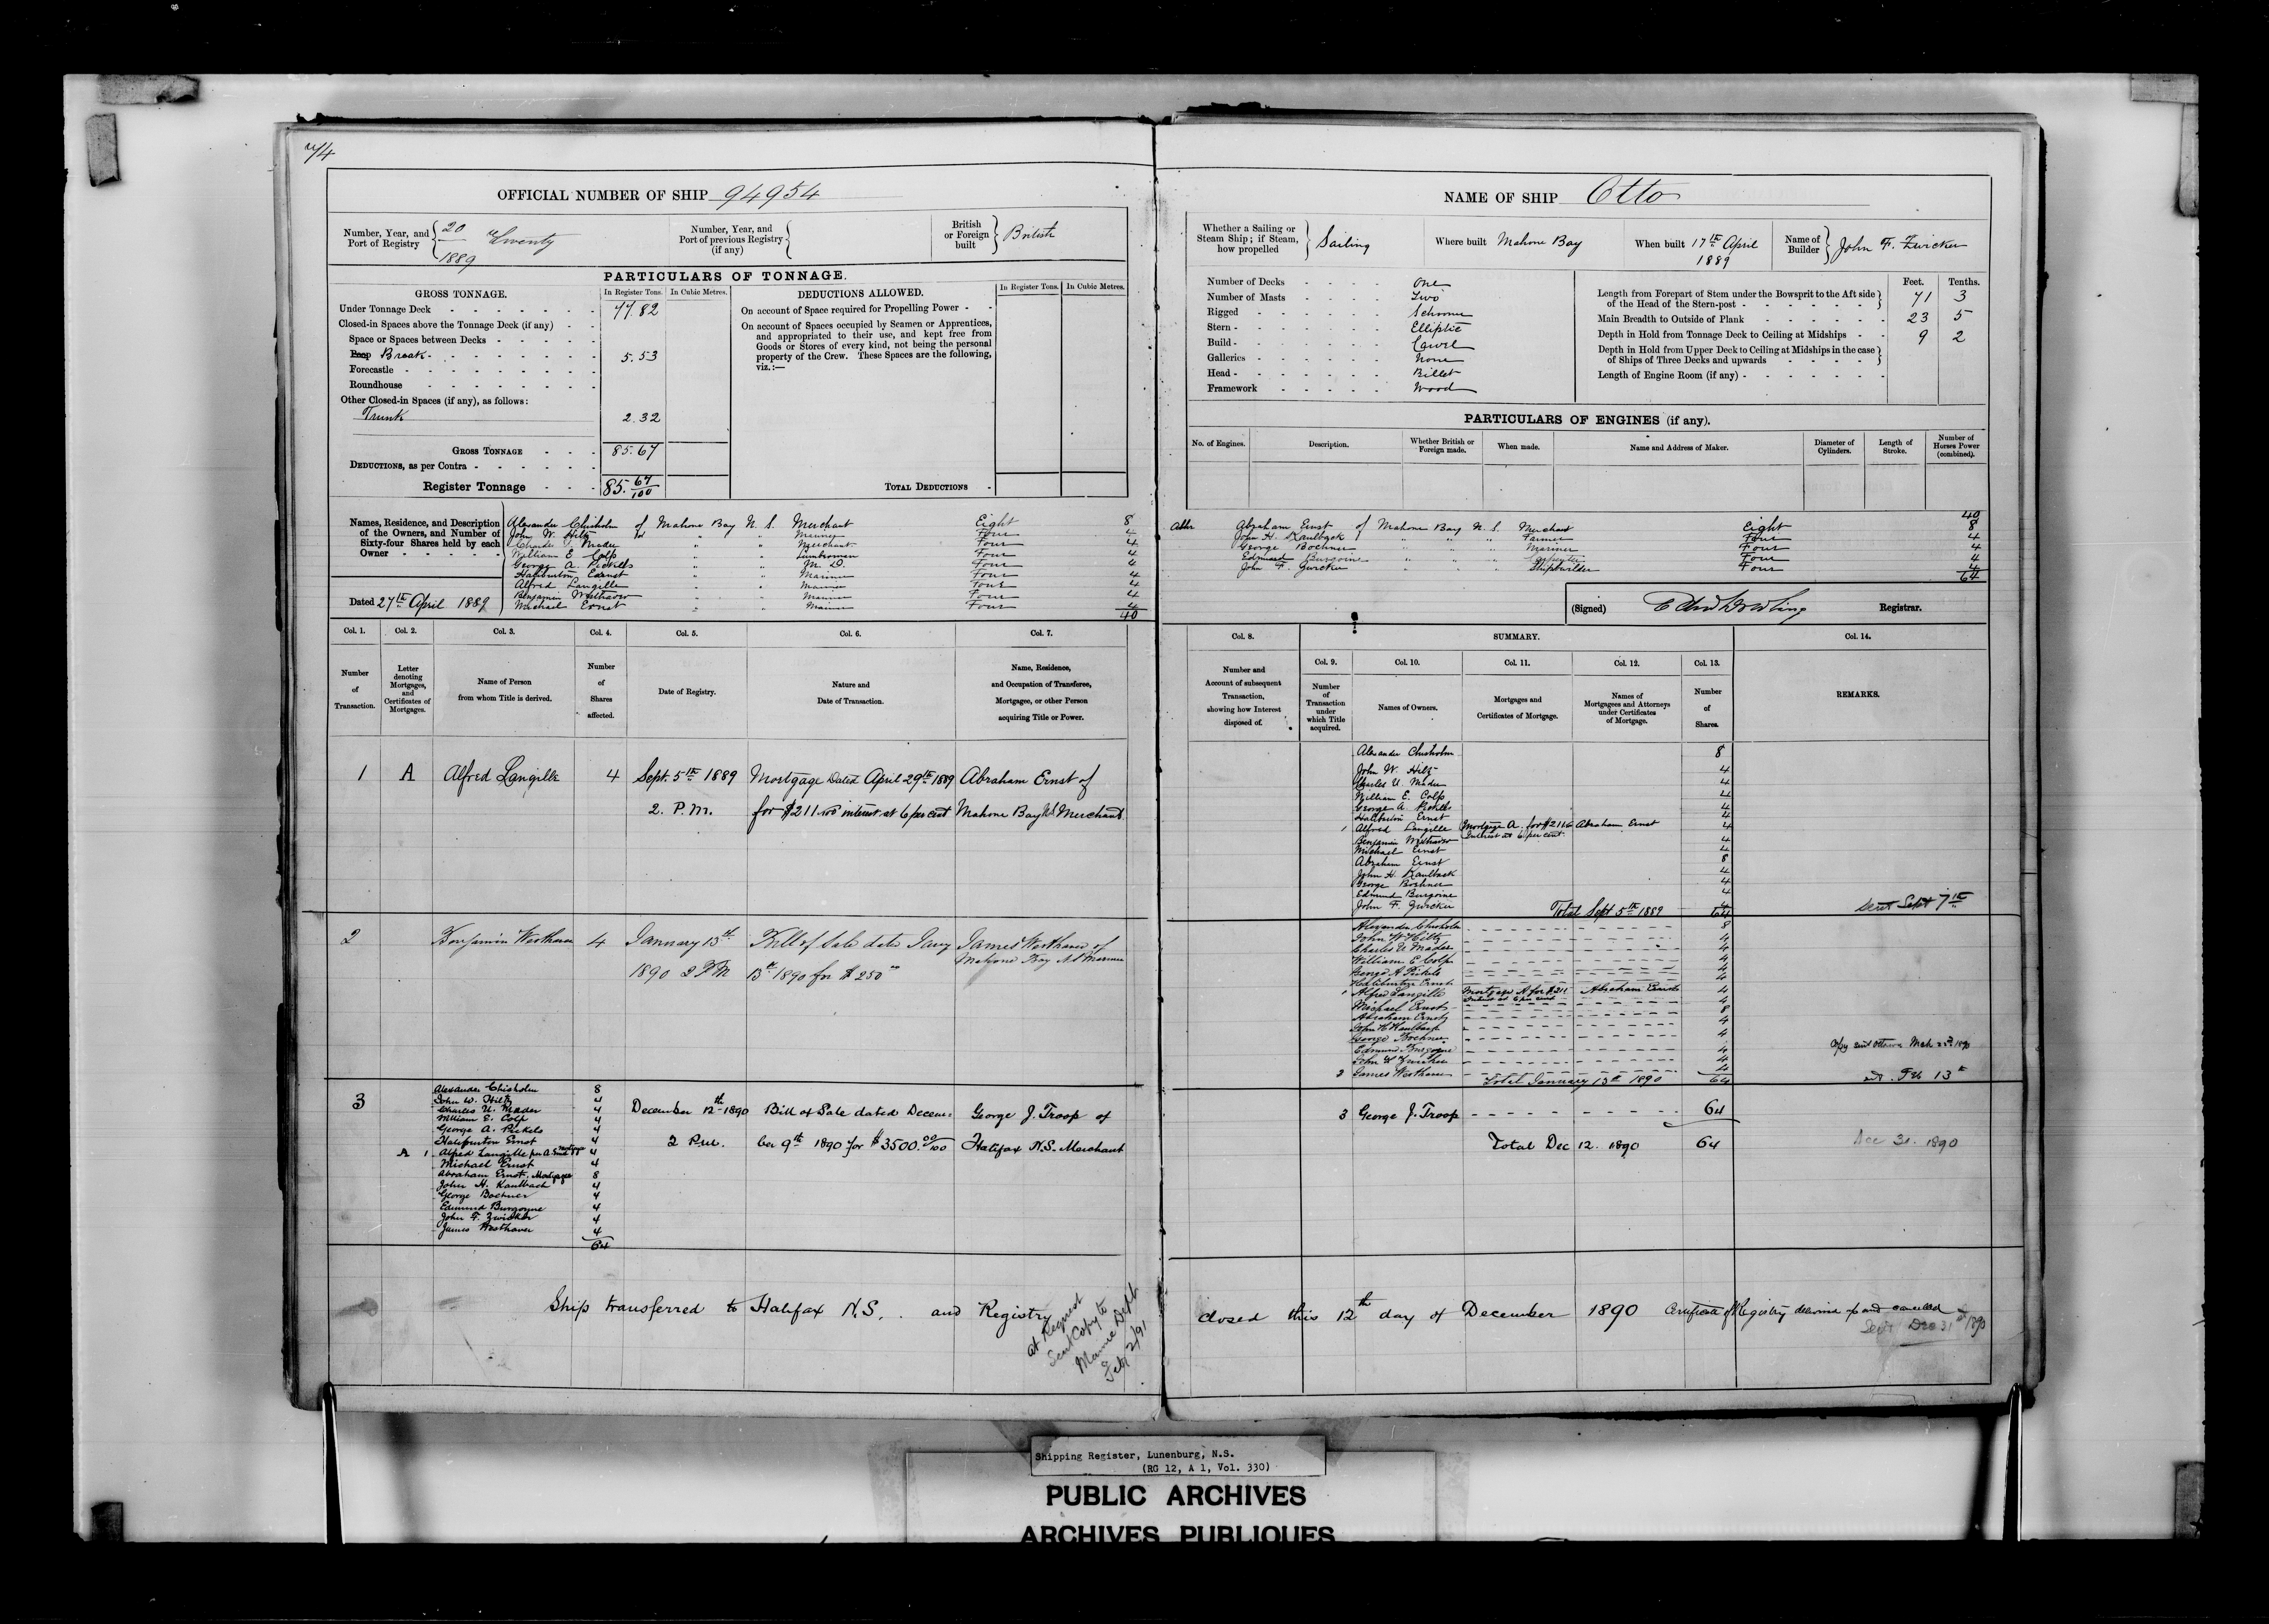 74
OFFICIAL NUMBER OF SHIP 94954
Number, Year, and Port of Registry 20 / 1889 Twenty
Number, Year, and Port of previous Registry (if any)
British or Foreign built British
PARTICULARS OF TONNAGE.
GROSS TONNAGE. In Register Tons. In Cubic Metres.
Under Tonnage Deck 77.82
Closed-in Spaces above the Tonnage Deck (if any)
Space or Spaces between Decks
Poop Break 5.53
Forecastle
Roundhouse
Other Closed-in Spaces (if any), as follows:
Trunk 2.32
GROSS TONNAGE 85.67
DEDUCTIONS, as per Contra
Register Tonnage 85. 67/100
DEDUCTIONS ALLOWED. In Register Tons. In Cubic Metres.
On account of Space required for Propelling Power
On account of Spaces occupied by Seamen or Apprentices,
and appropriated to their use, and kept free from
Goods or Stores of every kind, not being the personal
property of the Crew. These Spaces are the following,
viz.:—
TOTAL DEDUCTIONS
Names, Residence, and Description
of the Owners, and Number of
Sixty-four Shares held by each
Owner
Alexander Chisholm of Mahone Bay N. S. Merchant Eight 8
John W. Hiltz " " Four 4
Charles U. Mader " " Merchant Four 4
William E Colp " " Lumberman Four 4
George A. Pickels " " M. D. Four 4
Haliburton Ernst " " Mariner Four 4
Alfred Langille " " Mariner Four 4
Benjamin Westhaver " " Mariner Four 4
Michael Ernst " " Mariner Four 4
40
Dated 27th April 1889
Col. 1. Col. 2. Col. 3. Col. 4. Col. 5. Col. 6. Col. 7.
Number of Transaction.
Letter denoting Mortgages, and Certificates of Mortgages.
Name of Person from whom Title is derived.
Number of Shares affected.
Date of Registry.
Nature and Date of Transaction.
Name, Residence, and Occupation of Transferee, Mortgagee, or other Person acquiring Title or Power.
1 A Alfred Langille 4 Sept. 5th 1889 Mortgage Dated April 29th 1889 Abraham Ernst of
2. P.M. for $211.00 interest at 6 per cent Mahone Bay NS Merchant
2 Benjamin Westhaver 4 January 13th Bill of Sale date Jany James Westhaver of
1890 2 PM 13th 1890 for $250 00 Mahone Bay NS Mariner
3 Alexander Chisholm 8
John W. Hiltz 4
Charles U. Mader 4
William E. Colp 4
George A. Pickels 4
Haliburton Ernst 4
A 1 Alfred Langille 4
Michael Ernst 4
Abraham Ernst, Mortgagee 8
John H. Kaulback 4
George Boehner 4
Edmund Burgoyne 4
John F. Zwicker 4
James Westhaver 4
64
December 12th 1890 Bill of Sale dated Decem- George J. Troop of
2 P.M. ber 9th 1890 for $3500.00/100 Halifax N.S. Merchant
Ship transferred to Halifax N.S. and Registry
at Request
Sent Copy to
Marine Dept
Feb 2/91
NAME OF SHIP Otto
Whether a Sailing or Steam Ship; if Steam, how propelled Sailing
Where built Mahone Bay
When built 17th April 1889
Name of Builder John F. Zwicker
Number of Decks One
Number of Masts Two
Rigged Schooner
Stern Elliptic
Build Carvel
Galleries None
Head Billet
Framework Wood
Feet. Tenths.
Length from Forepart of Stem under the Bowsprit to the Aft side of the Head of the Stern-post 71 3
Main Breadth to Outside of Plank 23 5
Depth in Hold from Tonnage Deck to Ceiling at Midships 9 2
Depth in Hold from Upper Deck to Ceiling at Midships in the case of Ships of Three Decks and upwards
Length of Engine Room (if any)
PARTICULARS OF ENGINES (if any).
No. of Engines. Description. Whether British or Foreign made. When made. Name and Address of Maker. Diameter of Cylinders. Length of Stroke. Number of Horses Power (combined).
40
Abraham Ernst of Mahone Bay N. S. Merchant Eight 8
John H. Kaulback " " " Farmer Four 4
George Boehner " " " Mariner Four 4
Edmund Burgoine " " " Four 4
John F. Zwicker " " " Shipbuilder Four 4
64
(Signed) Registrar.
Col. 8. SUMMARY. Col. 14.
Col. 9. Col. 10. Col. 11. Col. 12. Col. 13.
Number and Account of subsequent Transaction, showing how Interest disposed of.
Number of Transaction under which Title acquired.
Names of Owners.
Mortgages and Certificates of Mortgage.
Names of Mortgagees and Attorneys under Certificates of Mortgage.
Number of Shares.
REMARKS.
Alexander Chisholm 8
John W. Hiltz 4
Charles U. Mader 4
William E. Colp 4
George A. Pickels 4
Haliburton Ernst 4
1 Alfred Langille Mortgage A. for $211 Interest at 6 per cent Abraham Ernst 4
Benjamin Westhaver 4
Michael Ernst 4
Abraham Ernst 8
John H. Kaulback 4
George Boehner 4
Edmund Burgoine 4
John F. Zwicker 4
Total Sept 5th 1889 64
Sent Sept 7th
Alexander Chisholm 8
John W Hiltz 4
Charles U Mader 4
William E Colp 4
George A Pickels 4
Haliburton Ernst 4
1 Alfred Langille Mortgage A for $211 Interest at 6 per cent Abraham Ernst 4
Michael Ernst 4
Abraham Ernst 8
John H Kaulback 4
George Boehner 4
Edmund Burgoyne 4
John F Zwicker 4
2 James Westhaver 4
Total January 13th 1890 64
Copy sent Ottawa
13th
3 George J. Troop 64
Total Dec 12. 1890 64
Dec 31. 1890
closed this 12th day of December 1890 Certificate of Registry delivered up and cancelled
Sent Dec 31st 1890
Shipping Register, Lunenburg, N.S.
(RG 12, A 1, Vol. 330)
PUBLIC ARCHIVES
ARCHIVES PUBLIQUES